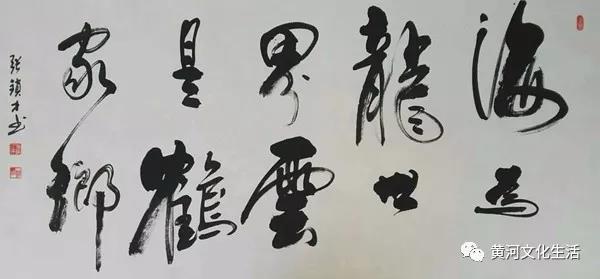 海為
龍世
界雲
是鶴
家鄉
張鎖才书
黄河文化生活